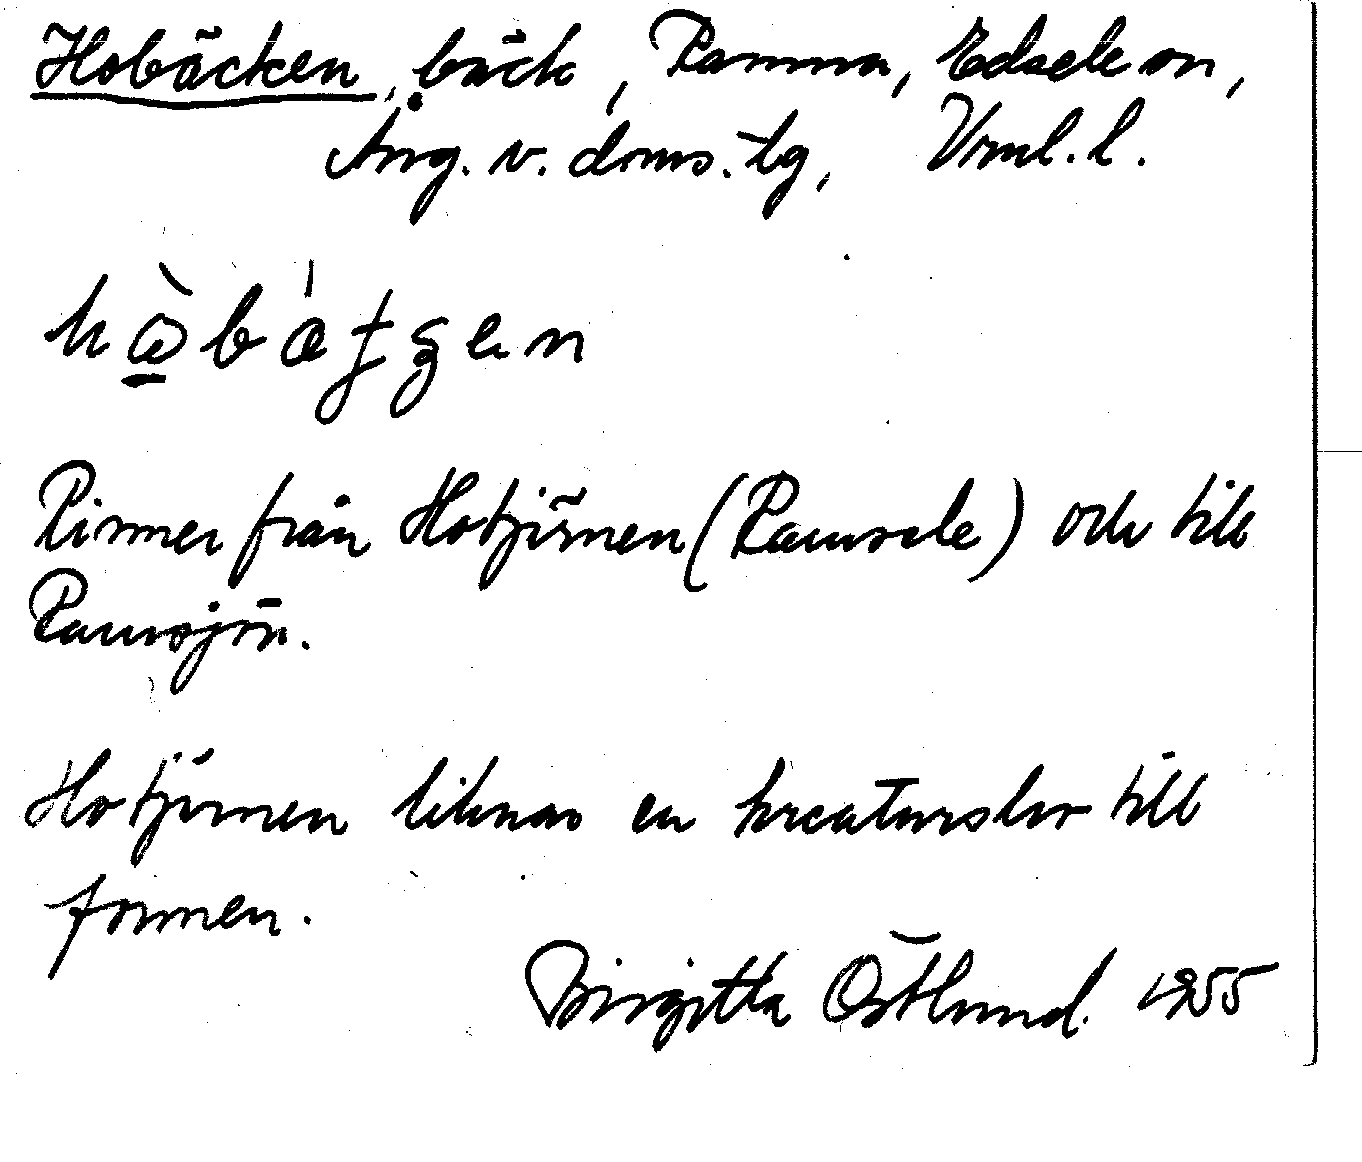 Hobäcken, bäck, Edsele sn,
Ång. v. doms. tg,
Rinner från Hotjärnen (Ramsele) och till
Ramsjön.
Hotjärnen liknar en kreatursho till
formen.
Birgitta Östlund. 1955